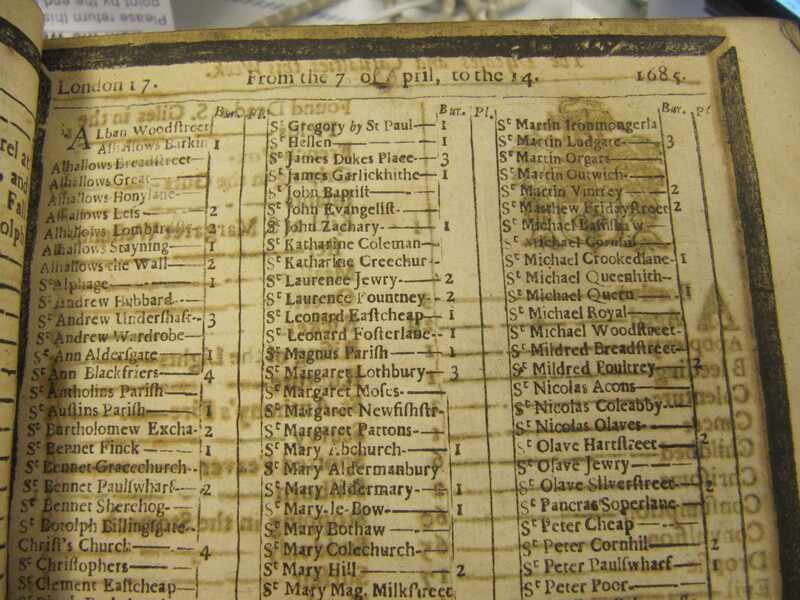 Please return this
point by the
London 17.
From the 7 of April, to the 14.
1685.
Bur. Pl.
ALban Woodſtreet
Alhallows Barkin 1
Alhallows Breadſtreet
Alhallows Great
Alhallows Honylane
Alhallows Leſs 2
Alhallows Lombard 2
Alhallows Stayning 1
Alhallows the Wall 2
St Alphage 1
St Andrew Hubbard
St Andrew Underſhaft 3
St Andrew Wardrobe
St Ann Alderſgate 1
St Ann Blackfriers 4
St Antholins Pariſh
St Auſtins Pariſh 1
St Bartholomew Excha 2
St Bennet Finck 1
St Bennet Gracechurch
St Bennet Paulſwharf 2
St Bennet Sherehog
St Botolph Billingſgate
Chriſt's Church 4
St Chriſtophers
St Clement Eaſtcheap
Bur. Pl.
St Gregory by St Paul 1
St Hellen 1
St James Dukes Place 3
St James Garlickhithe 1
St John Baptiſt
St John Evangeliſt
St John Zachary 1
St Katharine Coleman
St Katharine Creechur
St Laurence Jewry 2
St Laurence Pountney 2
St Leonard Eaſtcheap 1
St Leonard Foſterlane 1
St Magnus Pariſh 1
St Margaret Lothbury 3
St Margaret Moſes
St Margaret Newfiſhſtr
St Margaret Pattons
St Mary Abchurch 1
St Mary Aldermanbury
St Mary Aldermary 1
St Mary-le-Bow 1
St Mary Bothaw
St Mary Colechurch
St Mary Hill 2
St Mary Mag. Milkſtreet
Bur. Pl
St Martin Ironmongerla
St Martin Ludgate 3
St Martin Orgars
St Martin Outwich
St Martin Vintrey 2
St Matthew Fridayſtreet 2
St Michael Baſſiſhaw
St Michael Cornhil
St Michael Crookedlane 1
St Michael Queenhith
St Michael Quern 1
St Michael Royal
St Michael Woodſtreet
St Mildred Breadſtreet
St Mildred Poultrey
St Nicolas Acons
St Nicolas Coleabby
St Nicolas Olaves
St Olave Hartſtreet 2
St Olave Jewry
St Olave Silverſtreet 2
St Pancras Soperlane
St Peter Cheap
St Peter Cornhil 2
St Peter Paulſwharf 1
St Peter Poor